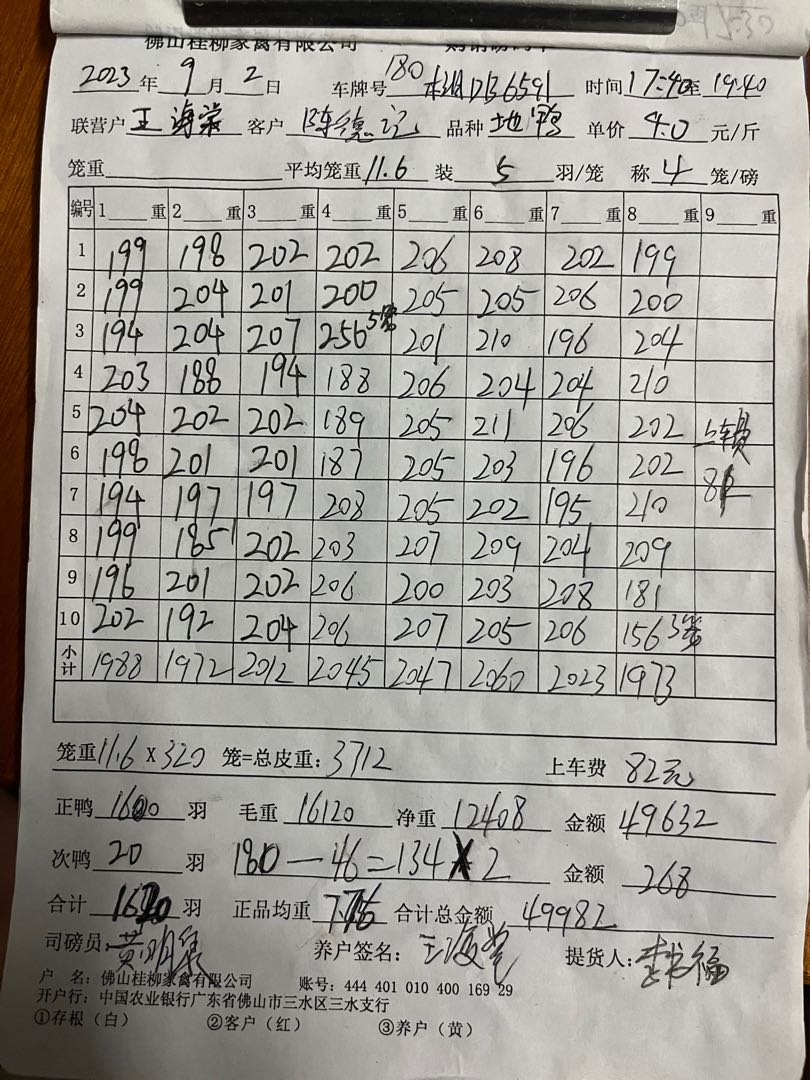 佛山桂柳家禽有限公司
2023年9月2日 车牌号 180 时间17:40至19:40
联营户王海棠 客户陈德记 品种地鸭 单价4.0元/斤
笼重 平均笼重11.6 装5羽/笼 称4笼/磅
编号 1 重 2 重 3 重 4 重 5 重 6 重 7 重 8 重 9 重
1 199 198 202 202 206 208 202 199
2 199 204 201 200 205 205 206 200
3 194 204 207 256 5笼 201 210 196 204
4 203 188 194 188 206 204 204 210
5 204 202 202 189 205 211 206 202 上车费
6 198 201 201 187 205 203 196 202
7 194 197 197 208 205 202 195 210
8 199 185 202 203 207 209 204 209
9 196 201 202 206 200 203 208 181
10 202 192 204 206 207 205 206 156 3笼
小计 1988 1972 2012 2045 2047 2060 2023 1973
笼重11.6 X 320 笼=总皮重:3712 上车费 82元
正鸭 1600 羽 毛重 16120 净重 12408 金额 49632
次鸭 20 羽 180-46=134 X 2 金额 268
合计 1620 羽 正品均重 合计总金额 49982
司磅员: 养户签名: 提货人:
户 名:佛山桂柳家禽有限公司 账号:444 401 010 400 169 29
开户行:中国农业银行广东省佛山市三水区三水支行
①存根(白) ②客户(红) ③养户(黄)